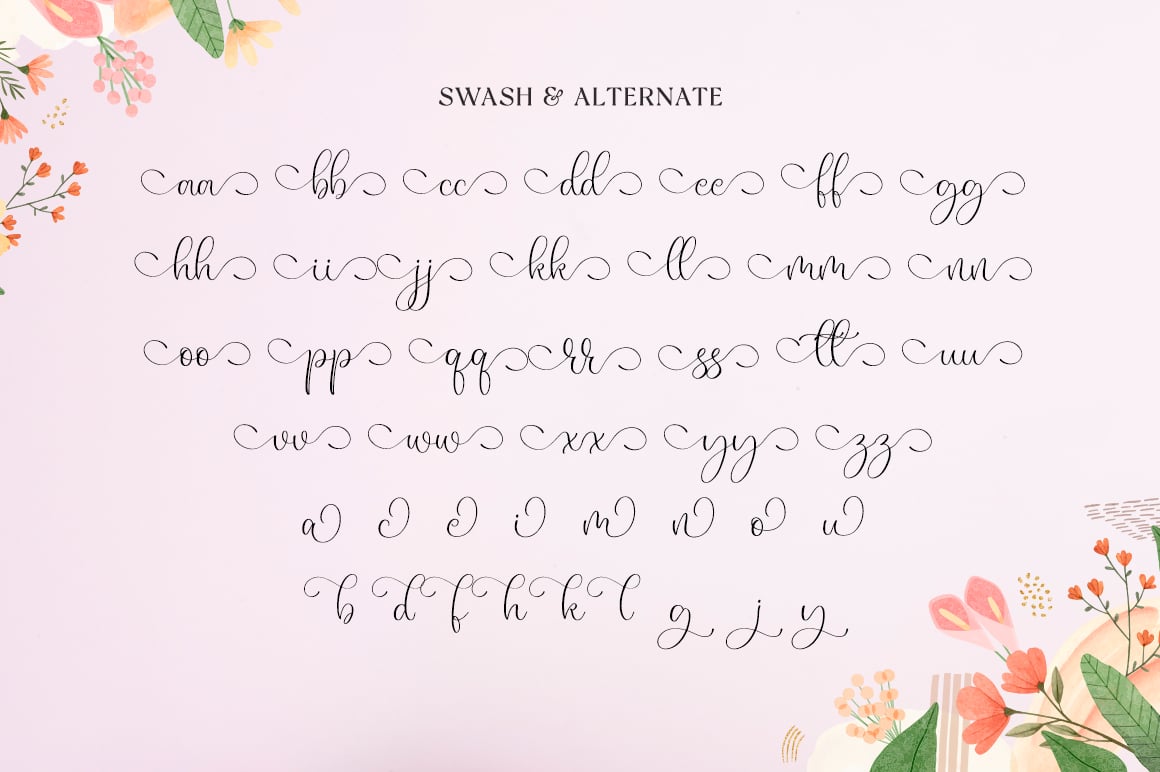 SWASH & ALTERNATE
aa bb cc dd ee ff gg
hh ii jj kk ll mm nn
oo pp qq rr ss tt uu
vv ww xx yy zz
a c e i m n o u
b d f h k l g j y